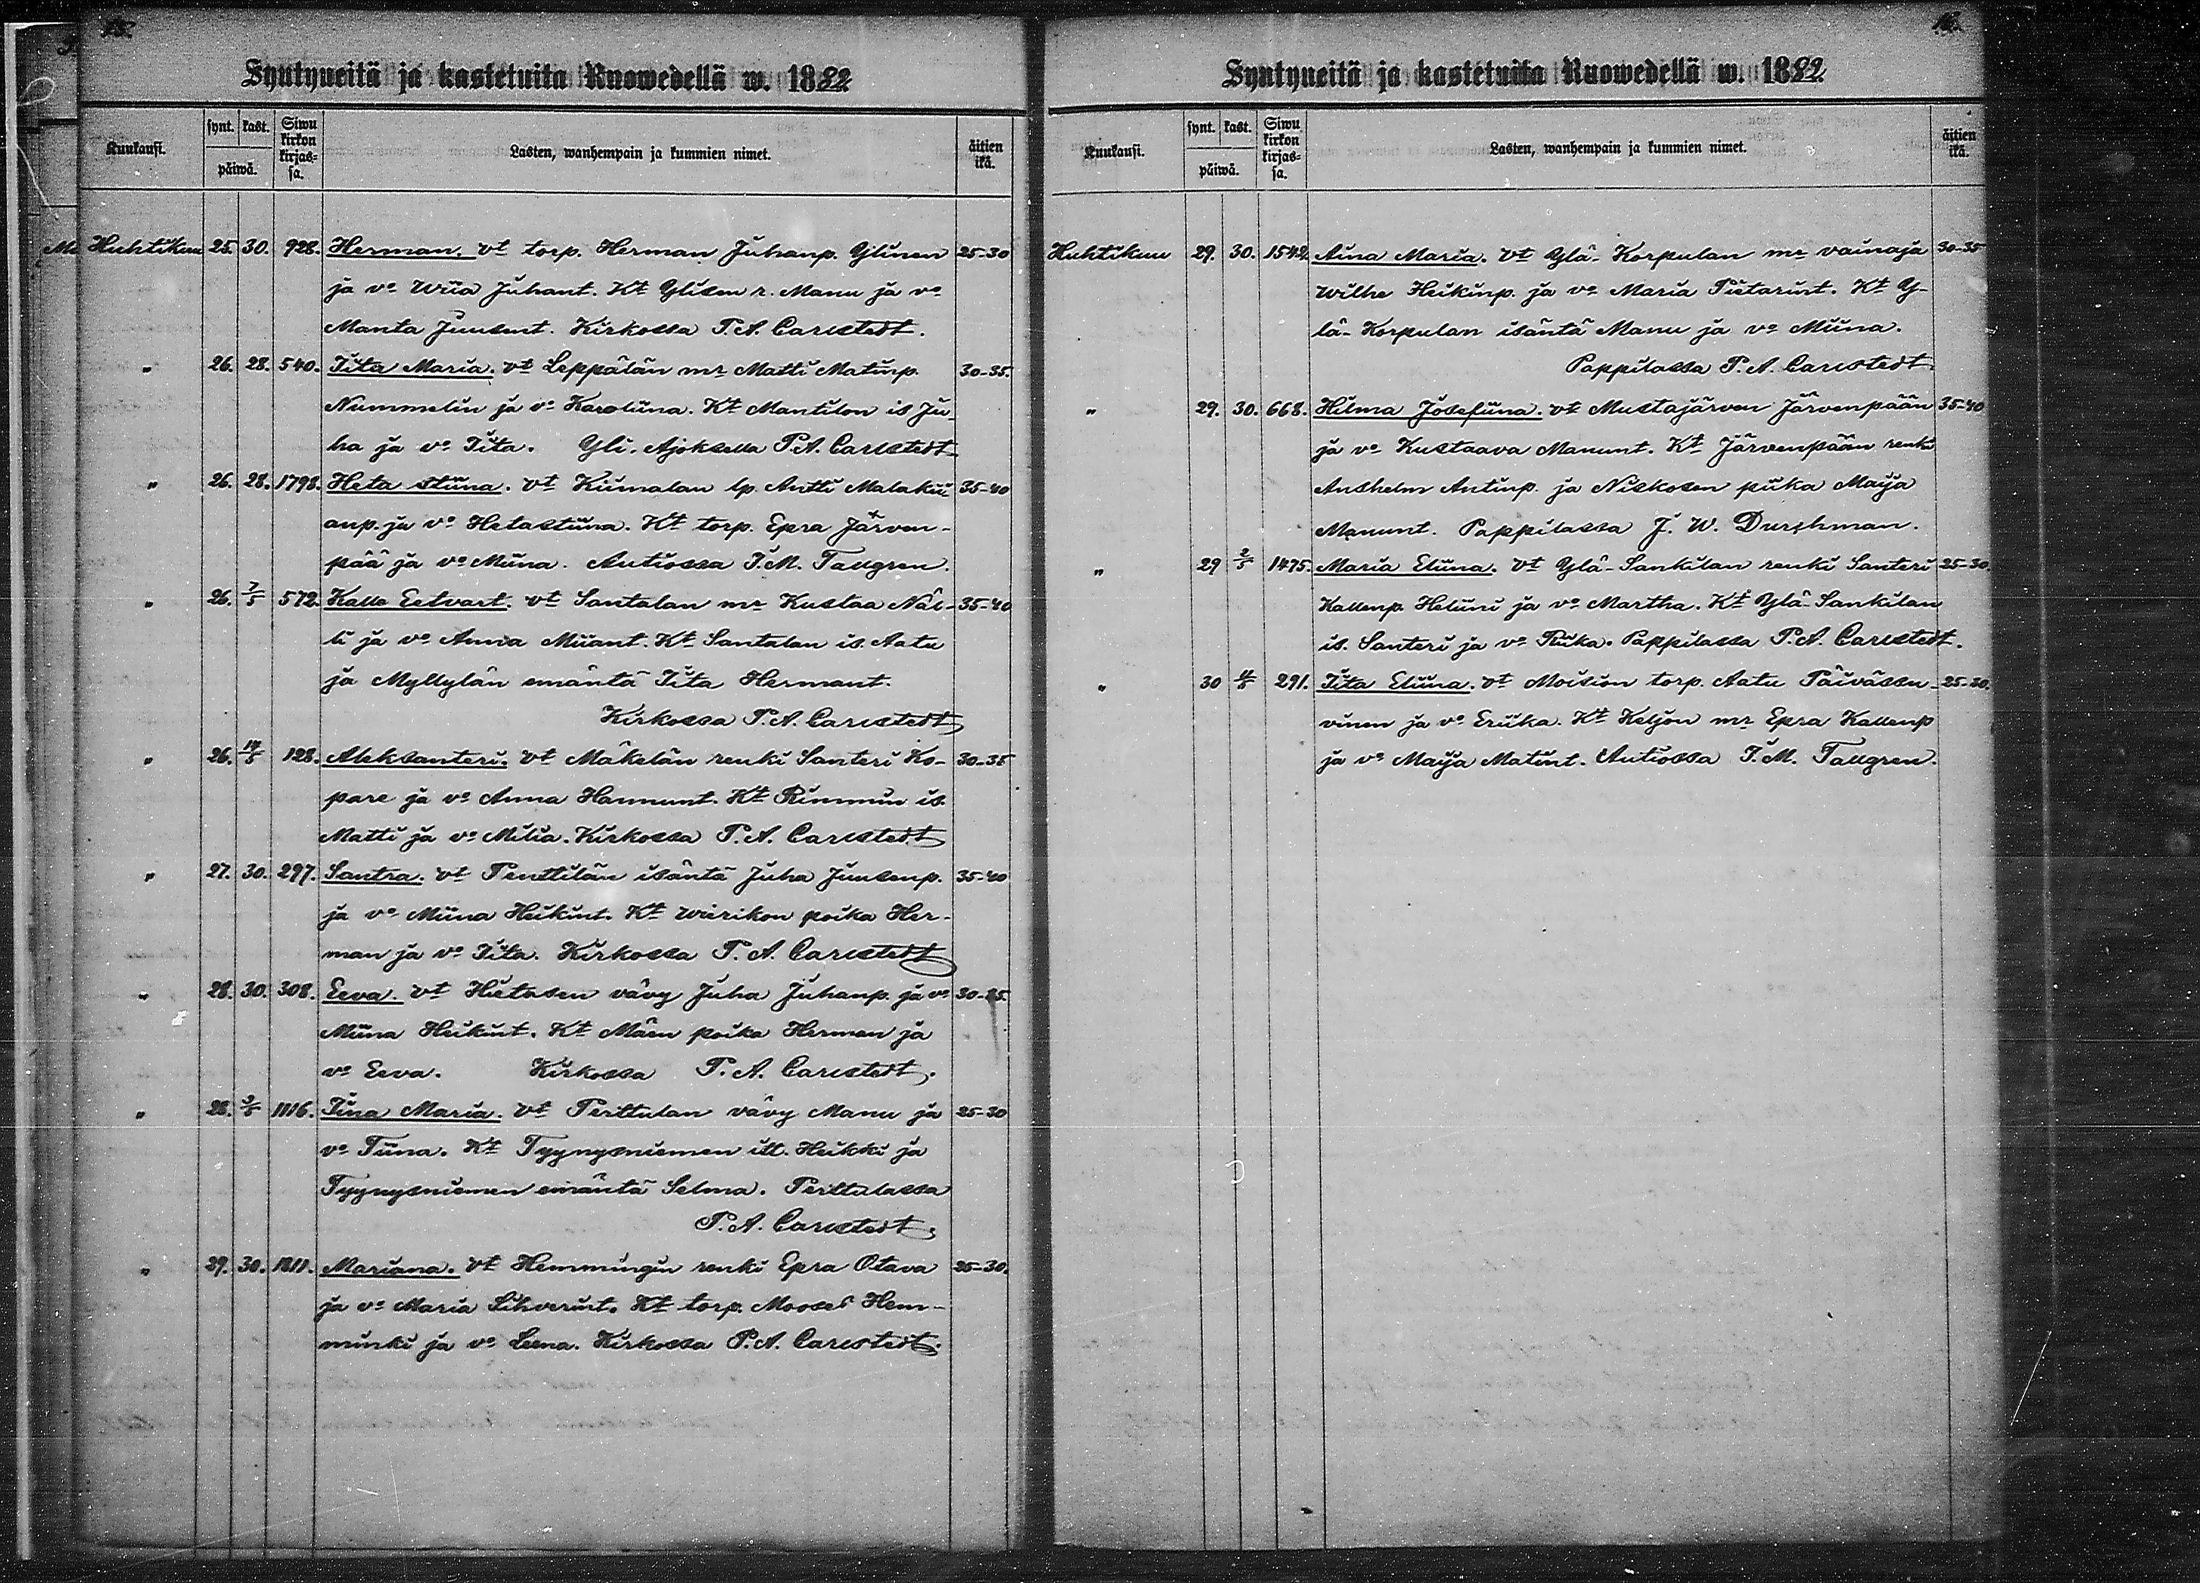 15.
Syntyneitä ja kastetuita Ruowedellä w. 1882.
Kuukausi.
synt. kast.
päiwä.
Siwu kirkon kirjas= sa.
Lasten, wanhempain ja kummien nimet.
äitien ikä.
Huhtikuu 25. 30. 928. Herman. vt torp. Herman Juhanp. Ylinen 25-30
ja vo Wiia Juhant. Kt Ylisen r. Manu ja vo
Manta Juusent. Kirkossa P. A. Carlstedt.
" 26. 28. 540. Iita Maria. vt Leppälän mr Matti Matinp. 30-35.
Nummelin ja vo Karoliina. Kt Mantilon is Ju-
ha ja vo Iita. Yli-Ajoksella P. A. Carlstedt
" 26. 28. 1798. Heta Stiina. vt Kiimalan lp. Antti Malakii- 35-40
anp. ja vo Hetastiina. Kt torp. Epra Järven-
pää ja vo Miina. Autiossa I. M. Tallgren.
" 26. 7/5 572. Kalle Eetvart. vt Santalan mr Kustaa Näs- 35-40
li ja vo Anna Miiant. Kt Santalan is. Aatu
ja Myllylän emäntä Iita Hermant.
Kirkossa P. A. Carlstedt
" 26. 14/5 128. Aleksanteri. vt Mäkelän renki Santeri Ko- 30-35
pare ja vo Anna Hannunt. Kt Rimmin is.
Matti ja vo Milia. Kirkossa P. A. Carlstedt
" 27. 30. 297. Santra. vt Penttilän isäntä Juha Juusenp. 35-40
ja vo Miina Heikint. Kt Wierikon poika Her-
man ja vo Iita. Kirkossa P. A. Carlstedt
" 28. 30. 308. Eeva. vt Hietasen vävy Juha Juhanp. ja vo 30-35.
Miina Heikint. Kt Mäen poika Herman ja
vo Eeva. Kirkossa P. A. Carlstedt.
" 28. 3/5 1116. Iina Maria. vt Perttulan vävy Manu ja 25-30
vo Tiina. Kt Tyynysniemen itt. Heikki ja
Tyynysniemen emäntä Selma. Perttulassa
P. A. Carlstedt.
" 29. 30. 1811. Mariana. vt Hemmingin renki Epra Otava 25-30.
ja vo Maria Sihverint. Kt torp. Mooses Hem-
minki ja vo Leena. Kirkossa P. A. Carlstedt.
16.
Syntyneitä ja kastetuita Ruowedellä w. 1882.
Kuukausi.
synt. kast.
päiwä.
Siwu kirkon kirjas= sa.
Lasten, wanhempain ja kummien nimet.
äitien ikä.
Huhtikuu 29. 30. 1542. Aina Maria. vt Ylä-Korpulan mr vainaja 30-35
Wilhe Heikinp. ja vo Maria Pietarint. Kt Y-
lä-Korpulan isäntä Manu ja vo Miina.
Pappilassa P. A. Carlstedt.
" 29. 30. 668. Hilma Josefiina. vt Mustajärven Järvenpään 35-40
ja vo Kustaava Manunt. Kt Järvenpään renki
Anshelm Antinp. ja Niskosen piika Maija
Manunt. Pappilassa J. W. Durchman.
" 29 2/5 1475. Maria Eliina. vt Ylä-Sankilan renki Santeri 25-30.
Kallenp Heliini ja vo Martha. Kt Ylä-Sankilan
is. Santeri ja vo Riika. Pappilassa P. A. Carlstedt.
" 30 291. Iita Eliina. vt Moision torp. Aatu Päivässu- 25-30.
vinen ja vo Eriika. Kt Keljon mr Epra Kallenp
ja vo Maija Matint. Autiossa I. M. Tallgren.